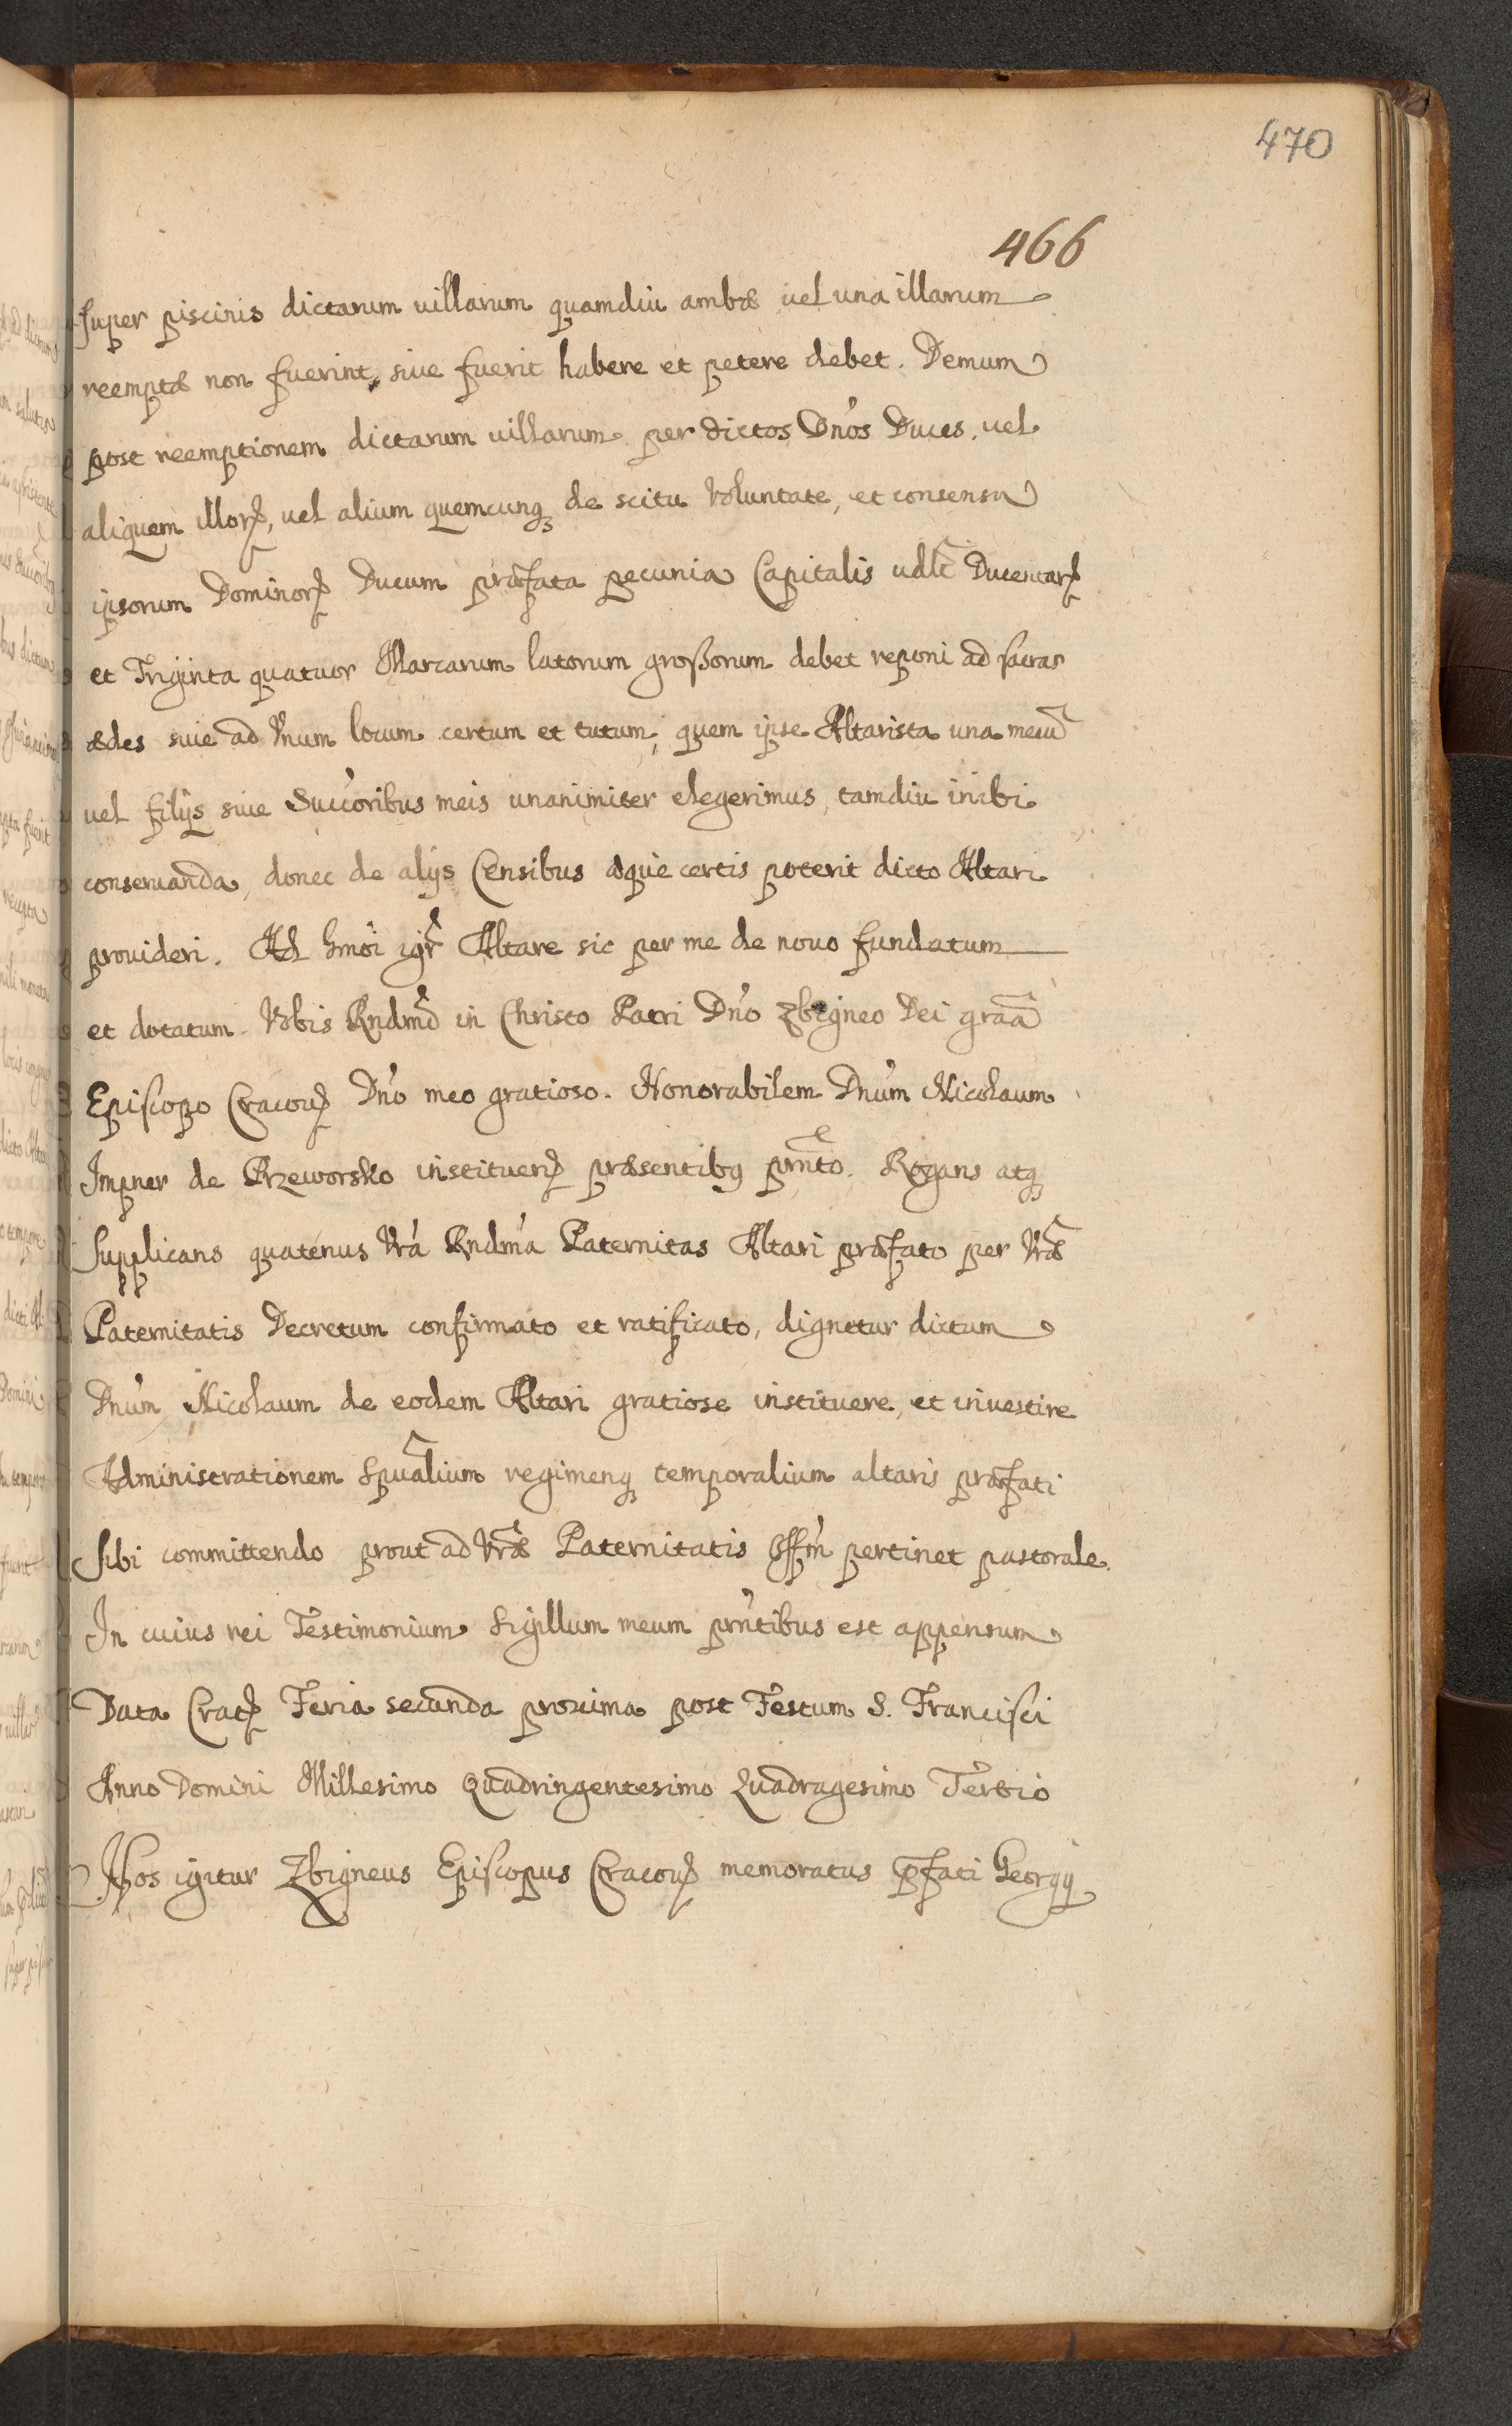 470
466
super piscinis dictarum villarum quamdiu ambæ vel una illarum
reemptæ non fuerint, siue fuerit habere et petere debet. Demum
post reemptionem dictarum villarum per dictos Dn̄os Duces, vel
aliquem illorꝝ, vel alium quemcunqꝫ de scitu voluntate, et consensu
ipsorum Dominorꝝ Ducum præfata pecunia Capitalis vdlt̄ Ducentarꝝ
et Triginta quatuor Marcarum latorum grossorum debet reponi ad sacras
ædes siue ad Vnum locum certum et tutum, quem ipse Altarista una mecū
vel filijs siue Succ̄oribus meis unanimiter elegerimus, tamdiu inibi
conseruanda, donec de alijs Censibus æque certis poterit dicto Altari
prouideri. Ad hmōi igr̄ Altare sic per me de nouo fundatum
et dotatum. Vobis Rndmō in Christo Patri Dn̄o Zbigneo Dei grāa
Episcopo Cracouꝝ Dn̄o meo gratioso. Honorabilem Dn̄um Nicolaum
Impner de Przeworsko instituenꝝ præsentibꝫ prn̄to. Rogans atqꝫ
Supplicans quatenus Vrā Rndmā Paternitas Altari præfato per Vrǣ
Paternitatis Decretum confirmato et ratificato, dignetur dictum
Dn̄um Nicolaum de eodem Altari gratiose instituere, et inuestire
Administrationem Spuālium regimenqꝫ temporalium altaris præfati
sibi committendo prout ad Vrǣ Paternitatis Offm̄ pertinet pastorale.
In cuius rei Testimonium Sigillum meum prn̄tibus est appensum
Data Cracꝝ Feria secunda proxima post Festum S. Francisci
Anno Domini Millesimo Quadringentesimo Quadragesimo Tertio
Nos igitur Zbigneus Episcopus Cracouꝝ memoratus p̄fati Georgij